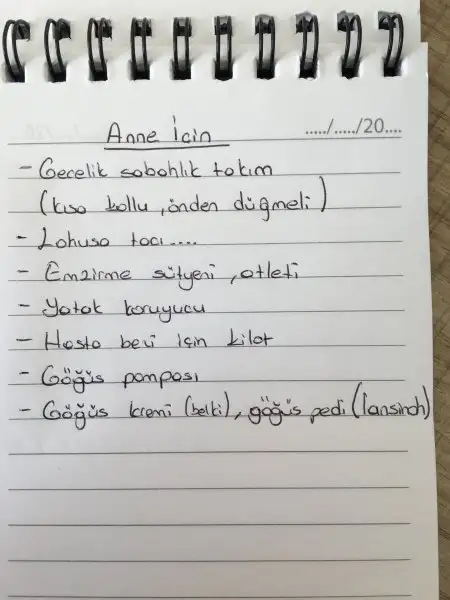 Anne İçin
...../...../20....
- Gecelik sabahlık takım
(kısa kollu, önden düğmeli)
- Lohusa tacı....
- Emzirme sütyeni, atleti
- Yatak koruyucu
- Hasta bezi için kilot
- Göğüs pompası
- Göğüs kremi (belki), göğüs pedi (lansinoh)